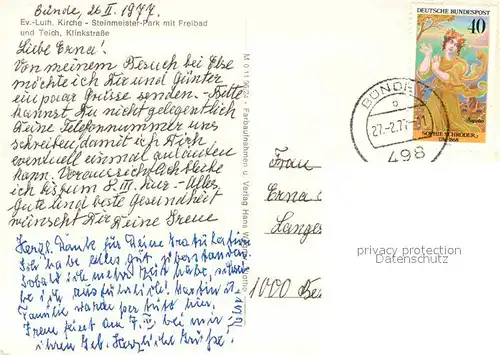 Bünde, 26 II. 1977.
Ev.-Luth. Kirche - Steinmeister-Park mit Freibad
und Teich, Klinkstraße
Liebe Erna!
Von meinem Besuch bei Else
möchte ich Dir und Günter
ein paar Grüsse senden. - Bitte
kannst Du nicht gelegentlich
Deine Telefonnummer uns
schreiben, damit ich Dich
eventuell einmal anläuten
kann. Voraussichtlich bleibe
ich bis zum 8. III. hier. - Alles
Gute und beste Gesundheit
wünscht Dir Deine Irene
Herzl. Dank für Deine Gratulation
Ich habe alles gut überstanden
Sobald ich mehr Zeit habe, schreibe
be ich ausführlich! Martin u.
Familie waren per Auto hier.
Irene feiert am 7. III. bei mir
ihren Geb. Herzliche Grüße!
M 0 11 9624 - Farbaufnahmen u. Verlag Hans
DEUTSCHE BUNDESPOST
40
Sappho
SOPHIE SCHRÖDER
BÜNDE
27.-2.77
498
Frau
Erna
Langes
1000 Be
privacy protection
Datenschutz